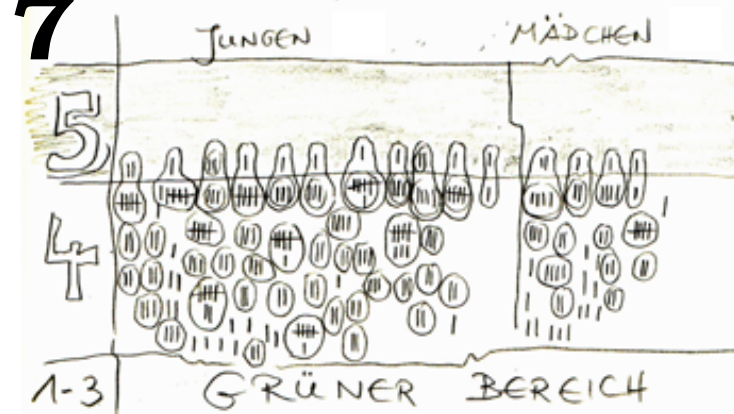 7
JUNGEN MÄDCHEN
5
4
1-3 GRÜNER BEREICH